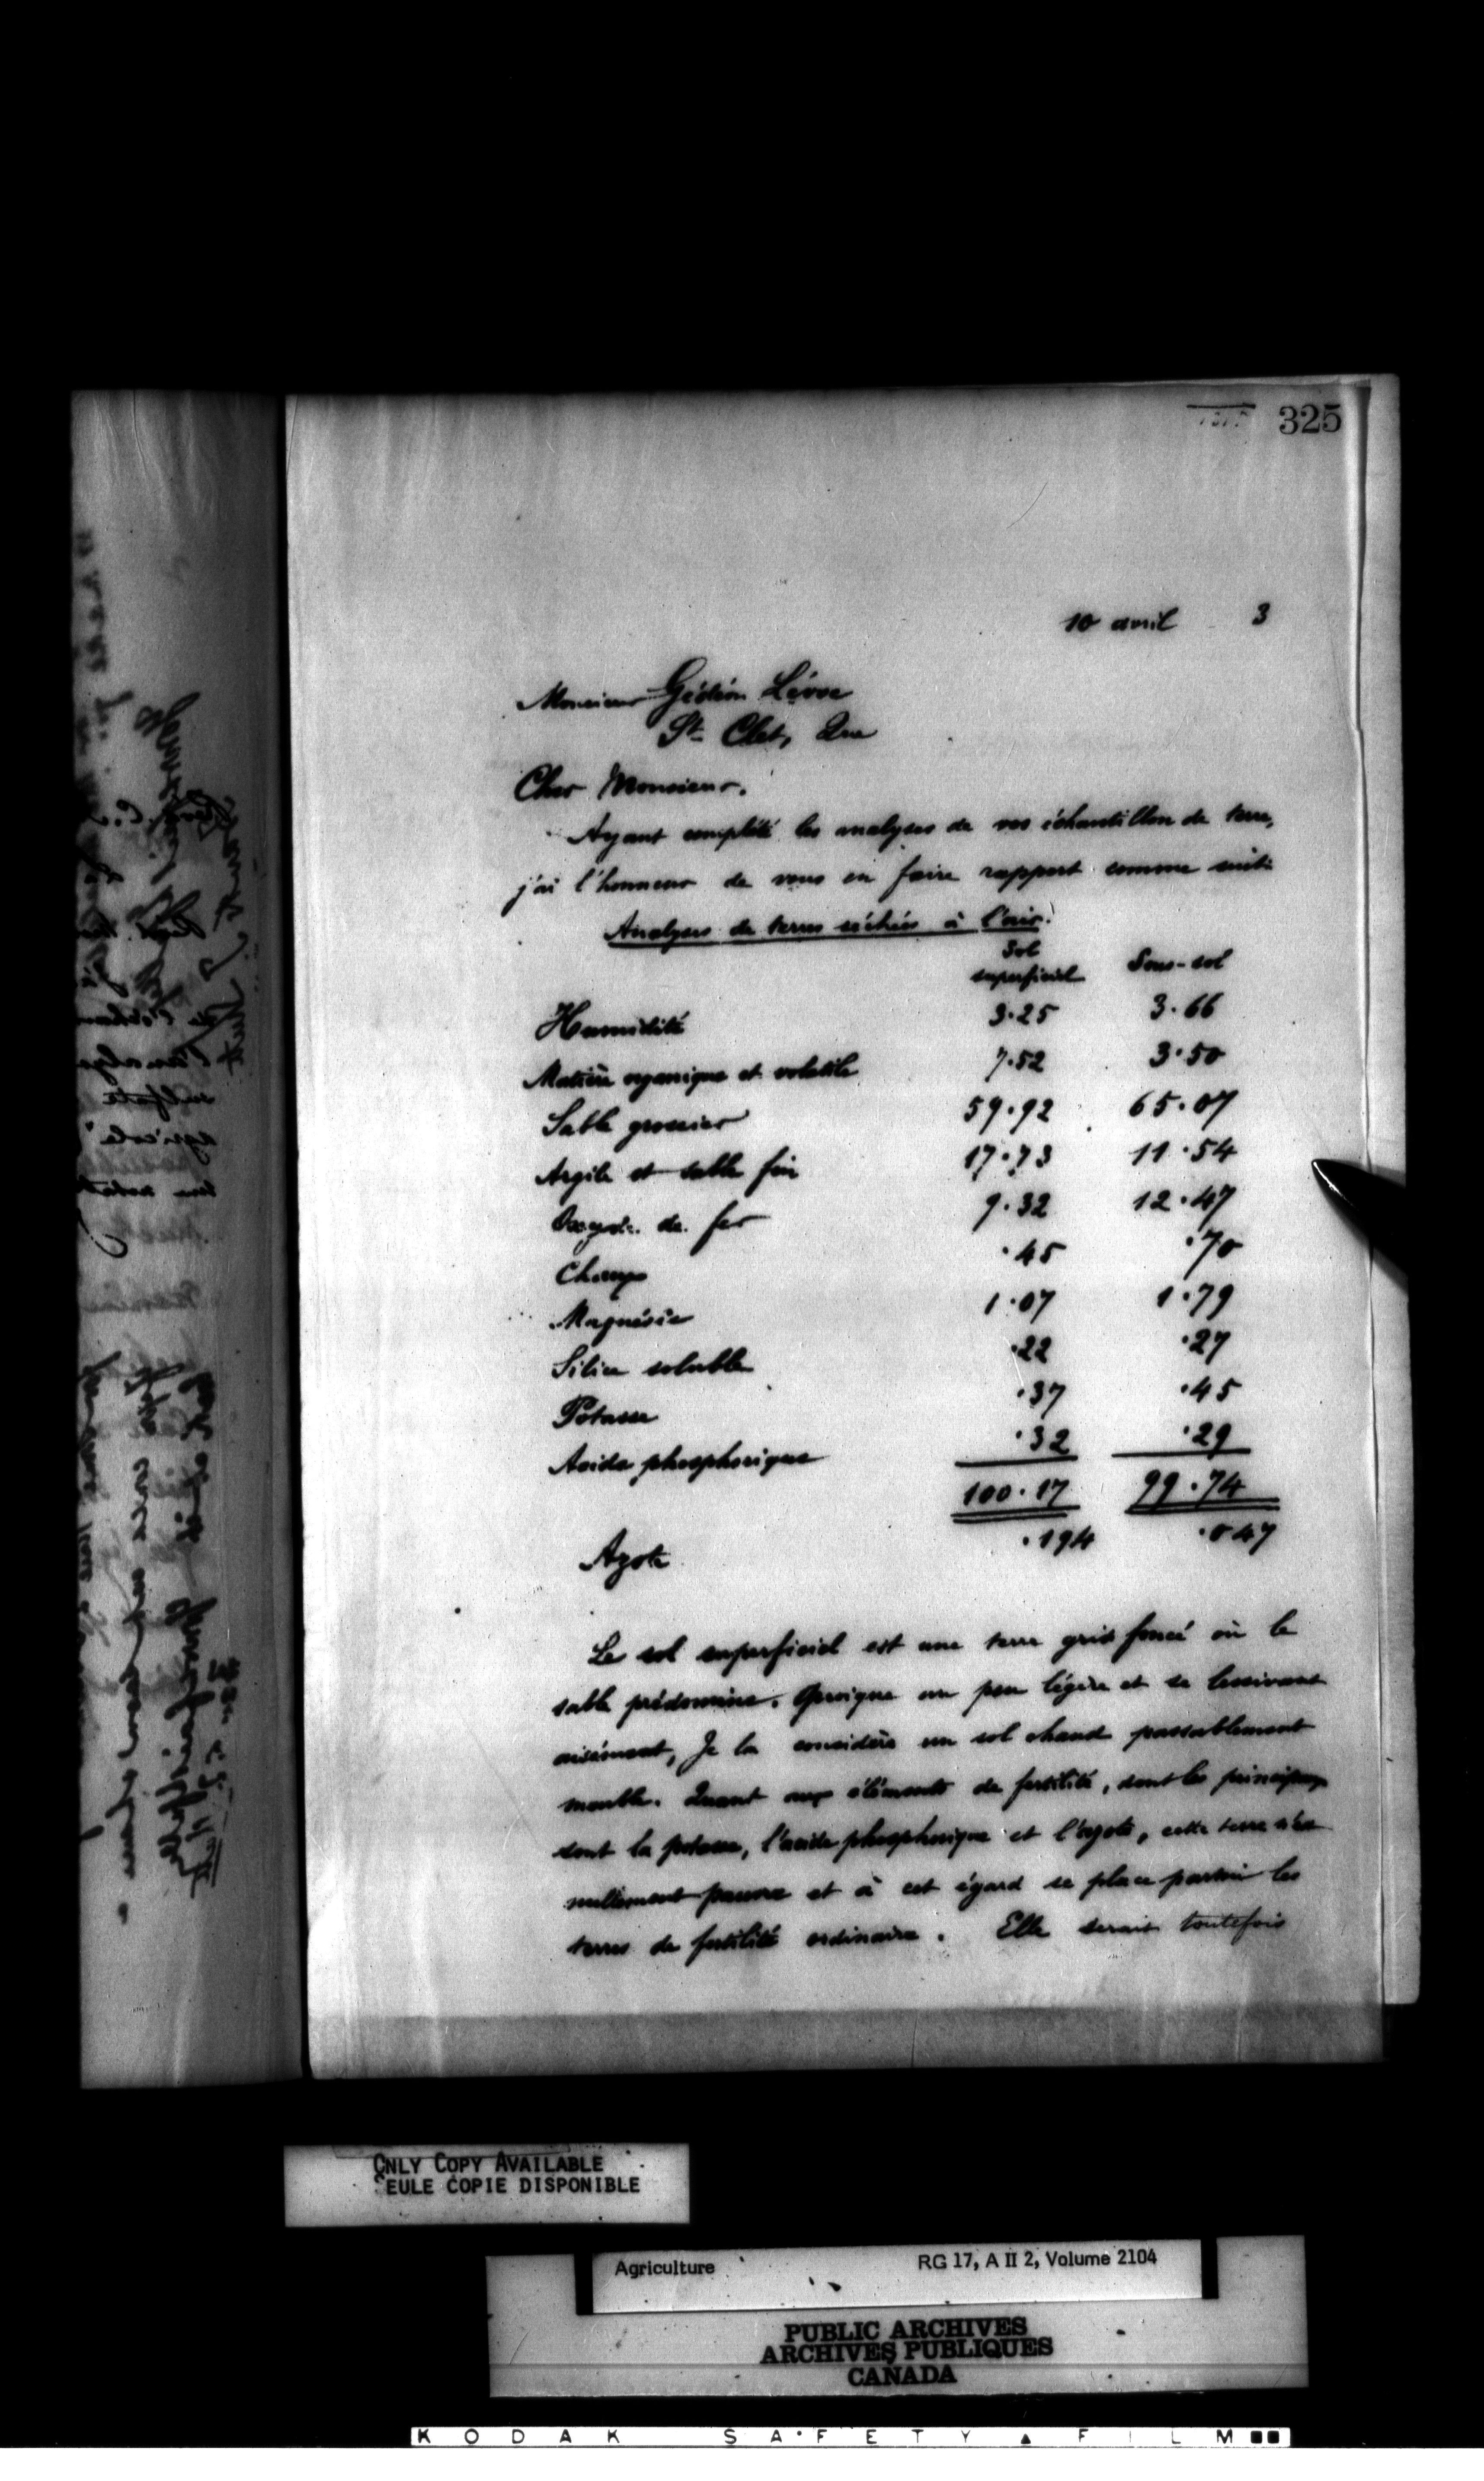 325
10 avril 3
Monsieur Gédéon
St Clet, Que
Cher Monsieur.
Ayant complété les analyses de vos échantillon de terre,
j'ai l'honneur de vous en faire rapport comme suit:
Analyses de terres séchées à l'air.
Sol
superficiel Sous-sol
Humidité 3.25 3.66
Matière organique et volatile 7.52 3.50
Sable grossier 59.92 65.07
Argile et sable fin 17.73 11.54
Oxyde de fer 9.32 12.47
Chaux .45 .70
Magnésie 1.07 1.79
Silice soluble .22 .27
Potasse .37 .45
Acide phosphorique .32 .29
100.17 99.74
Azote .194 .047
Le sol superficiel est une terre gris foncé où le
sable prédomine. Quoique un peu légère et se lessivant
aisément, Je la considère un sol chaud passablement
meuble. Quant aux éléments de fertilité, dont les principaux
sont la potasse, l'acide phosphorique et l'azote, cette terre n'est
nullement pauvre et à cet égard se place parmi les
terres de fertilité ordinaire. Elle serait toutefois
ONLY COPY AVAILABLE
SEULE COPIE DISPONIBLE
Agriculture RG 17, A II 2, Volume 2104
PUBLIC ARCHIVES
ARCHIVES PUBLIQUES
CANADA
KODAK SAFETY FILM